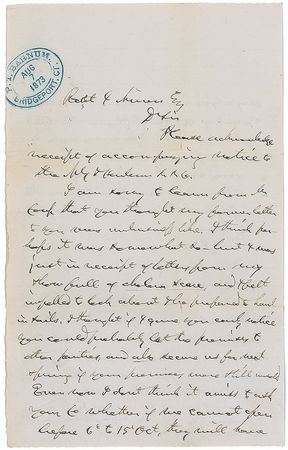 P. T. BARNUM.
AUG
1873
BRIDGEPORT, CT.
Dr Sir
Please acknowledge
receipt of accompanying notice to
the N.Y. & Harlem R.R. Co.
I am sorry to learn from Mr
that you thought my former letter
to you was unbusiness like. I think per-
haps it was somewhat so – but I was
just in receipt of letters from my
show full of cholera scare, and I felt
impelled to look about & be prepared to haul
in sails. I thought if I gave you early notice
you could probably let the premises to
other parties and also secure us for next
Spring if your premises were still
Even now I don't think it amiss to ask
you to whether if we cannot open
before 6th to 15 Oct, they will have